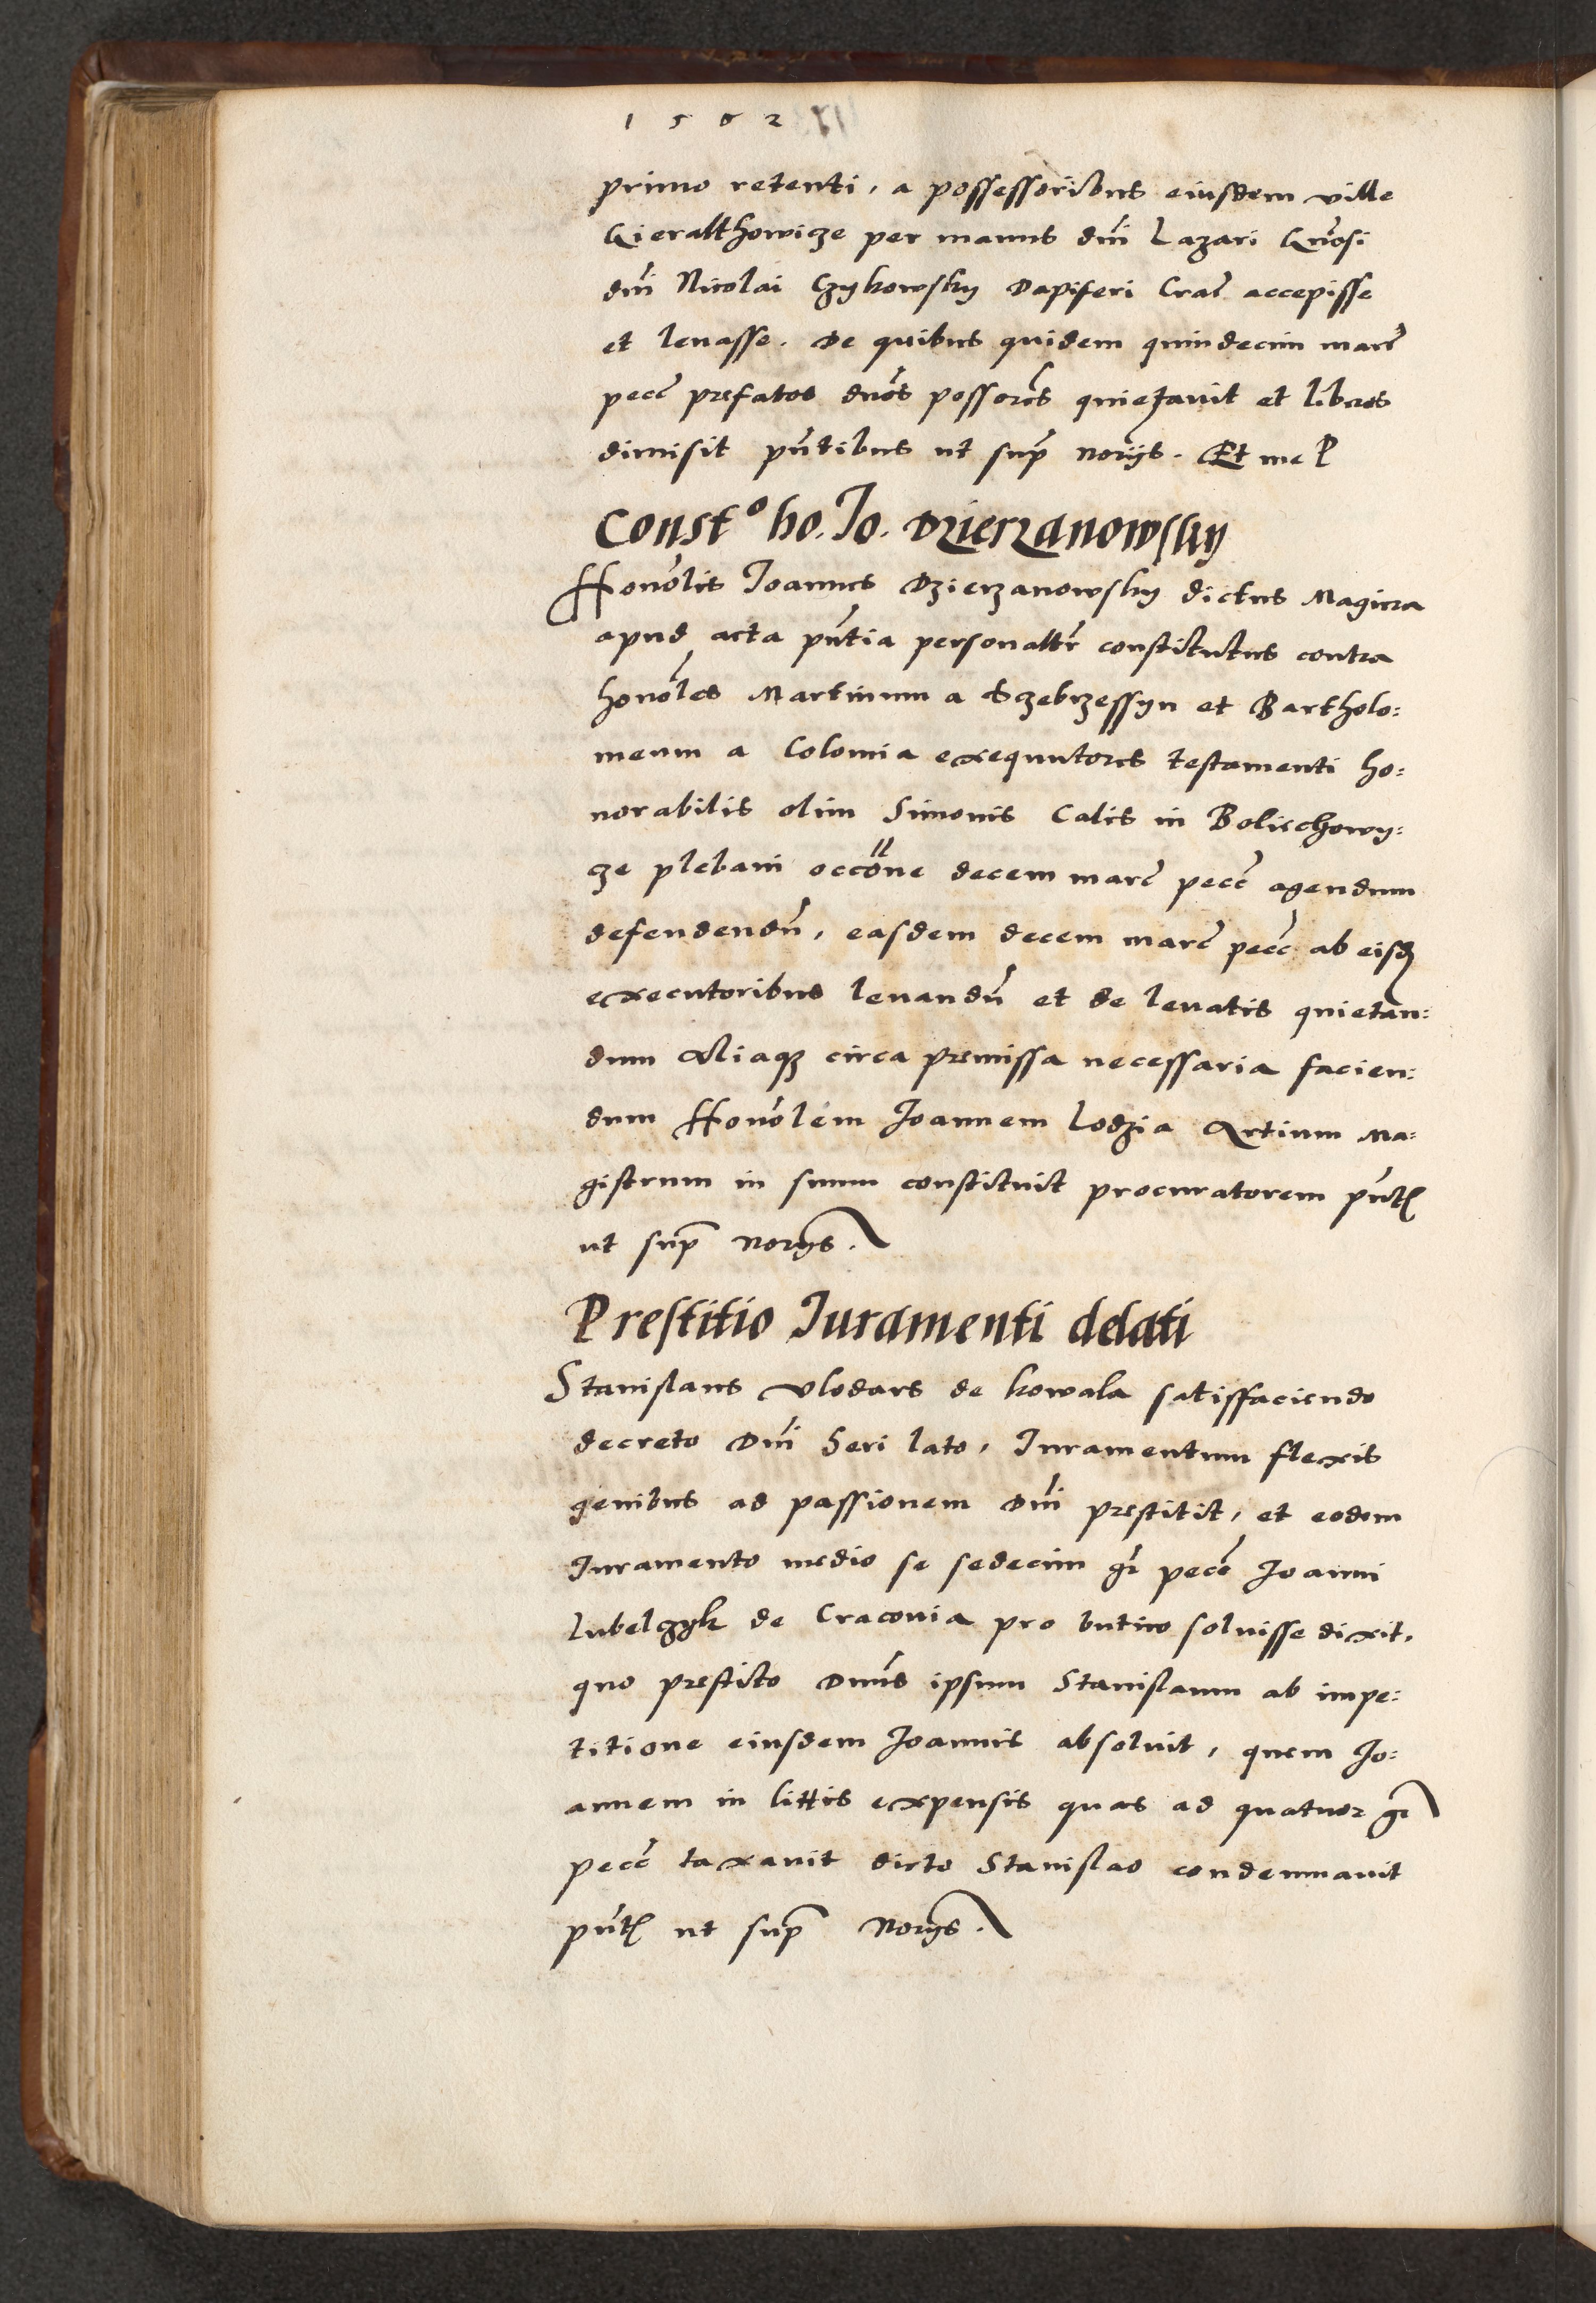 1562
primo retenti, a possessoribus eiusdem ville
Gieralthowicze per manus dni Lazari Gnosi
dni Nicolai Czykowsky Dapiferi Crac accepisse
et leuasse. De quibus quidem quindecim marc
pecc prefatos dnos possores quietauit et liberos
dimisit pntibus ut supra noriis. Et me P
Const° ho. Jo. Dzierzanowsky
Honolis Joannes Dzierzanowsky dictus Magiera
apud acta pntia personaltr constitutus contra
honoles Martinum a Sczebrzessyn et Bartholo:
meum a Colomia exequutores testamenti ho:
norabilis olim Simonis Calis in Bolischowy:
cze plebani occone decem marc pecc agendum
defendendn, easdem decem marc pecc ab eisd
executoribus leuandn et de leuatis quietan:
dum Aliaq circa premissa necessaria facien:
dum Honolem Joannem Lodzia Artium Ma:
gistrum in suum constituit procuratorem pnt
ut sup noriis.
Prestitio Juramenti delati
Stanislaus Vlodars de Kowala satisfaciendo
decreto Dni heri lato, Juramentum flexis
genibus ad passionem Dni prestitit, et eodem
Juramento medio se sedecim gr pecc Joanni
Lubelczyk de Craconia pro butiro soluisse dixit,
quo prestito Dnus ipsum Stanislaum ab impe:
titione eiusdem Joannis absoluit, quem Jo:
annem in littis expensis quas ad quatuor gr
pecc taxauit dicto Stanislao condemnauit
pnt ut sup Noriis.